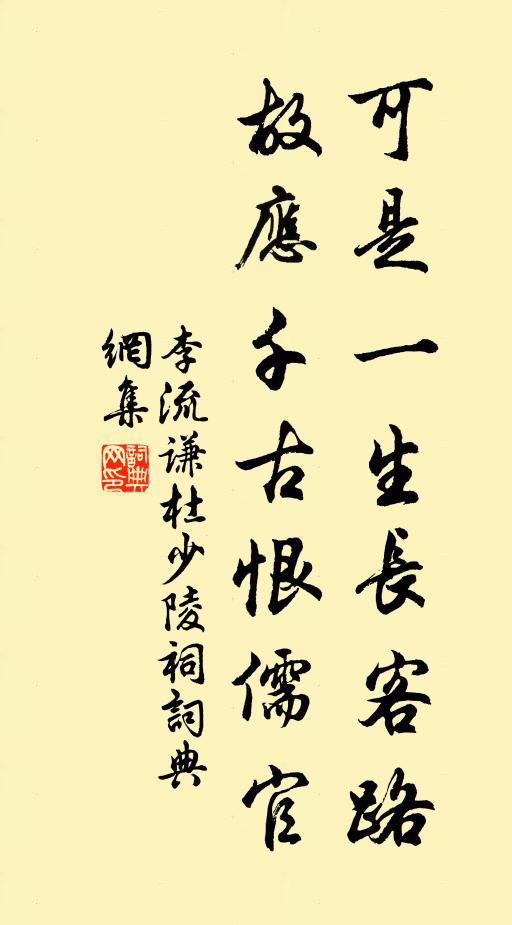 可是一生長客路
故應千古恨儒官
李流謙杜少陵祠詞典
網集
詞典網印